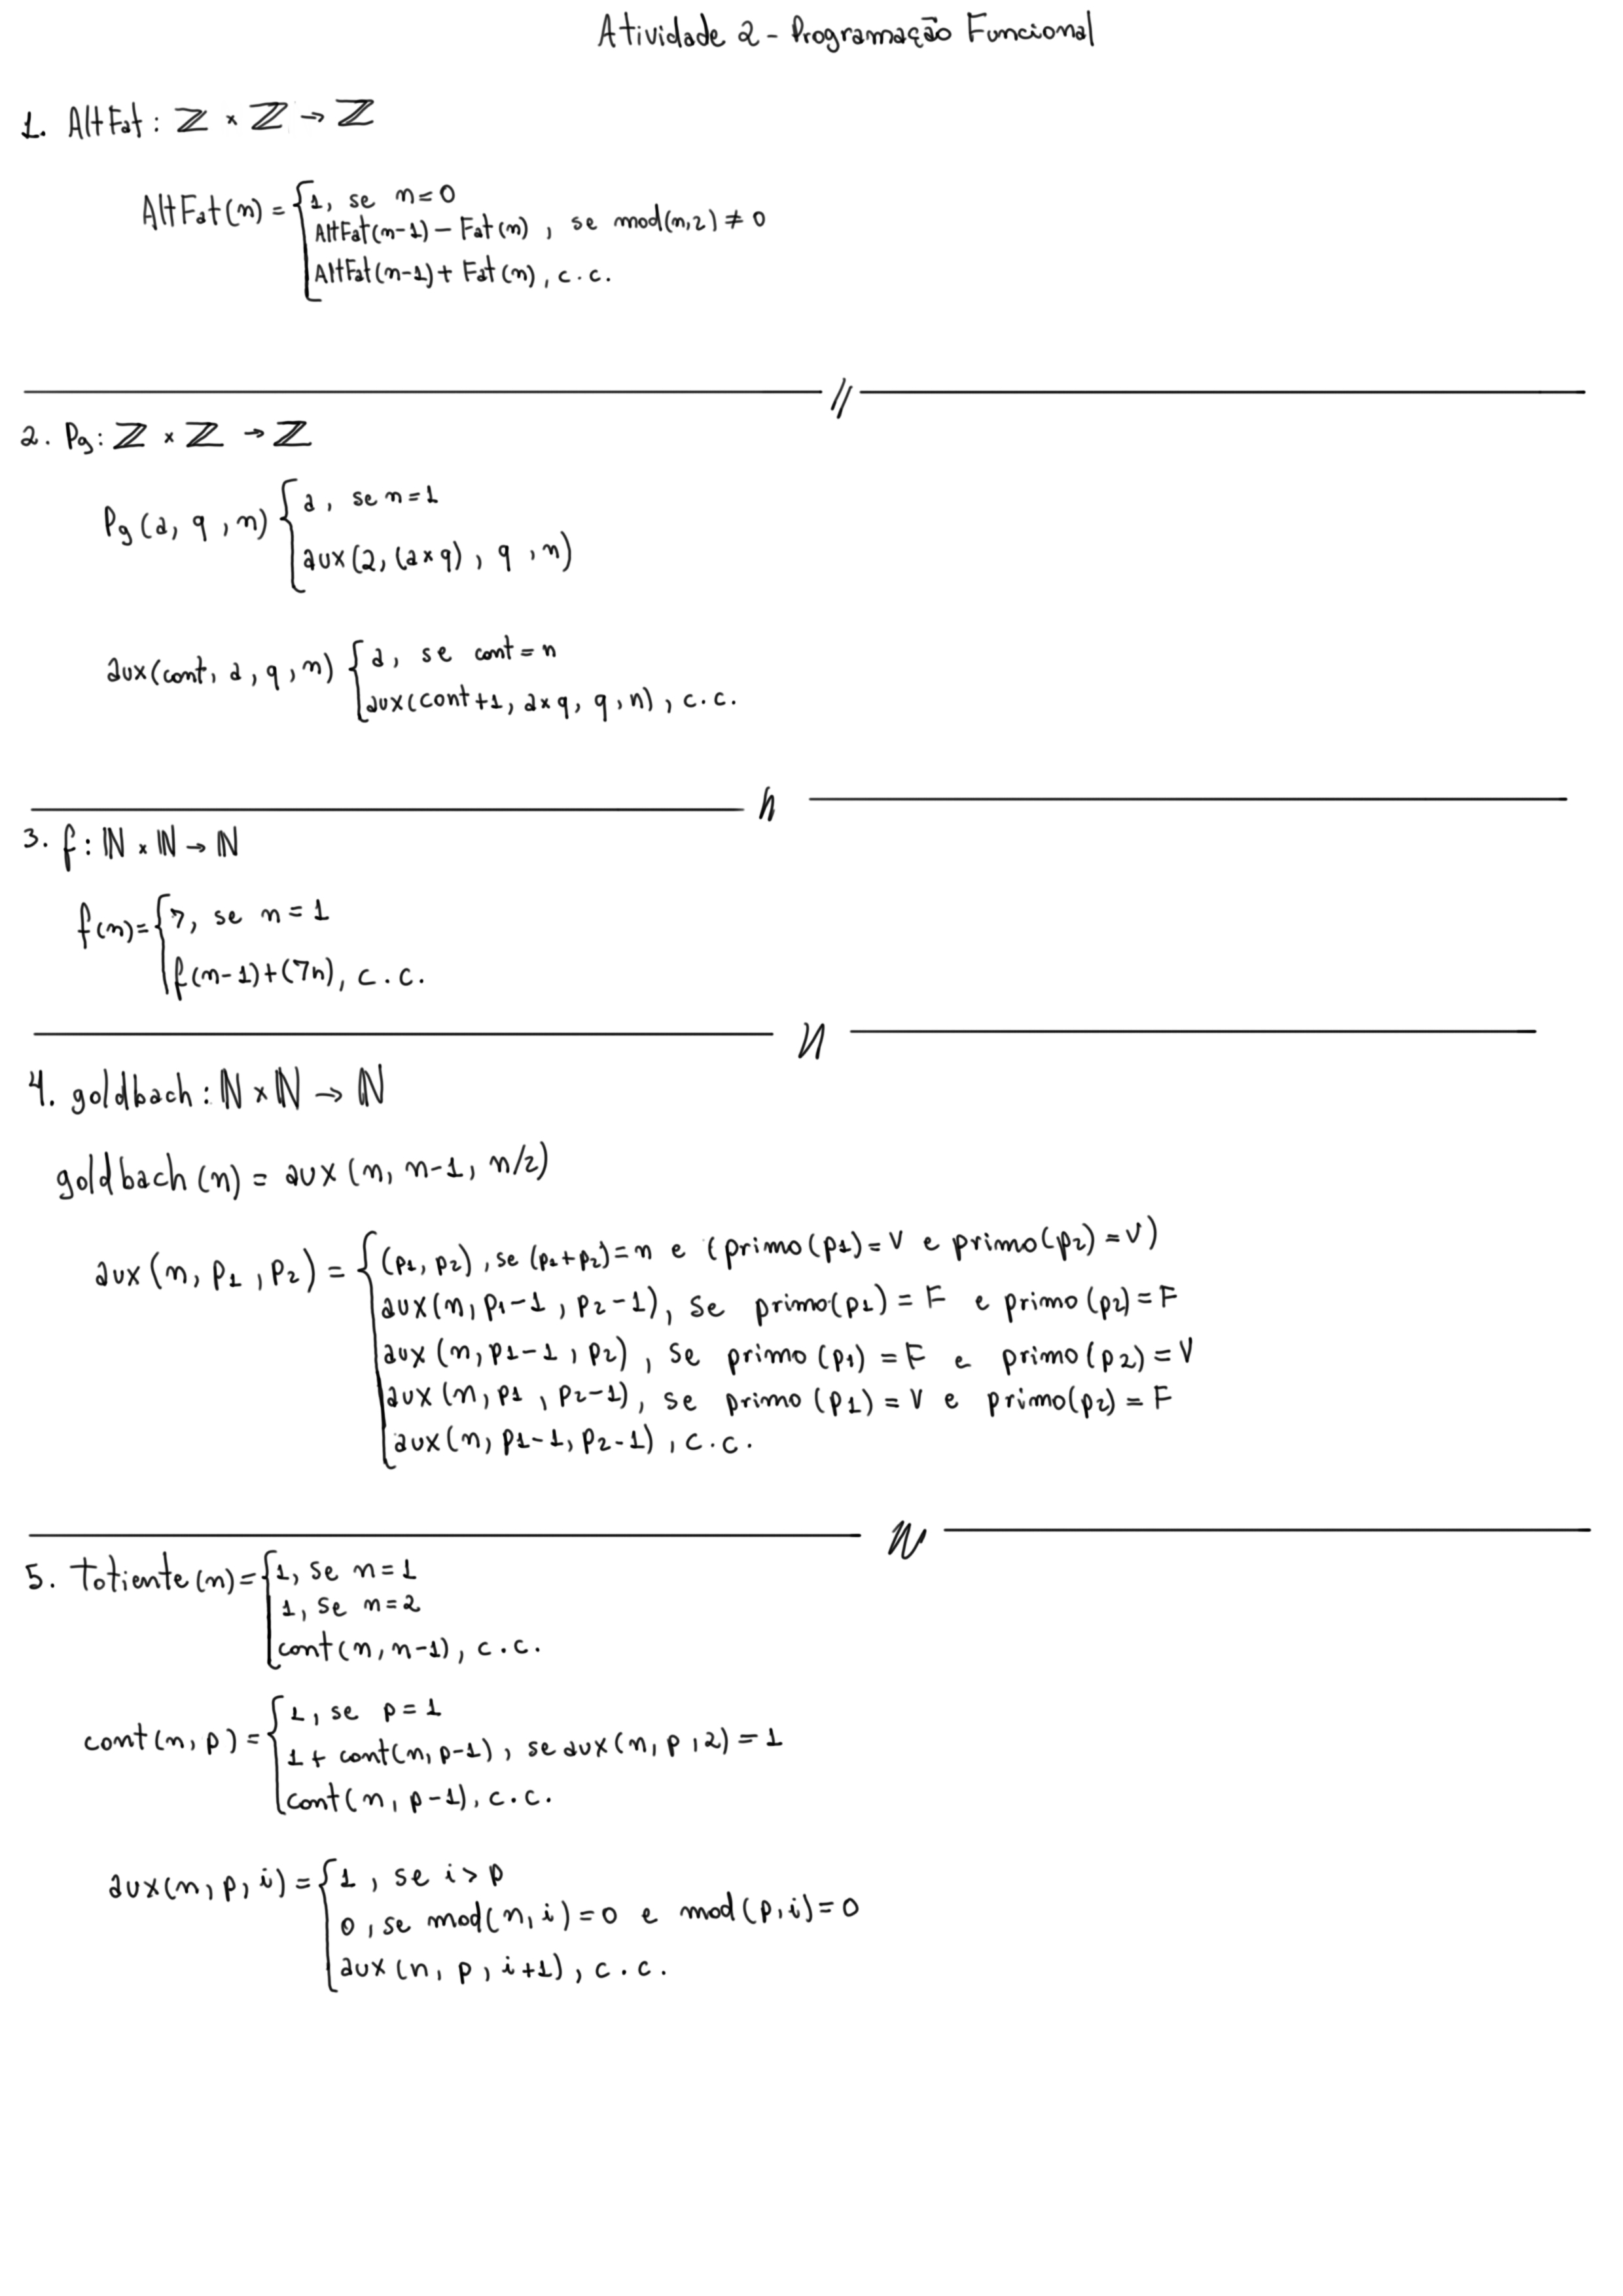 Atividade 2 - Programação Funcional
1. AltFat: ℤ × ℤ → ℤ
AltFat(n) = { 1, se n=0
AltFat(n-1) - Fat(n), se mod(n,2) ≠ 0
AltFat(n-1) + Fat(n), c.c.
2. Pg: ℤ × ℤ → ℤ
Pg(a, q, n) { a, se n=1
aux(2, (a×q), q, n)
aux(cont, a, q, n) { a, se cont=n
aux(cont+1, a×q, q, n), c.c.
3. f: ℕ × ℕ → ℕ
f(n) = { 7, se n=1
f(n-1)+(7n), c.c.
4. goldbach: ℕ × ℕ → ℕ
goldbach(n) = aux(n, n-1, n/2)
aux(n, p1, p2) = { (p1, p2), se (p1+p2)=n e (primo(p1)=V e primo(p2)=V)
aux(n, p1-1, p2-1), se primo(p1)=F e primo(p2)=F
aux(n, p1-1, p2), se primo(p1)=F e primo(p2)=V
aux(n, p1, p2-1), se primo(p1)=V e primo(p2)=F
aux(n, p1-1, p2-1), c.c.
5. Totiente(n) = { 1, se n=1
1, se n=2
cont(n, n-1), c.c.
cont(n, p) = { 1, se p=1
1 + cont(n, p-1), se aux(n, p, 2)=1
cont(n, p-1), c.c.
aux(n, p, i) = { 1, se i>p
0, se mod(n, i)=0 e mod(p, i)=0
aux(n, p, i+1), c.c.